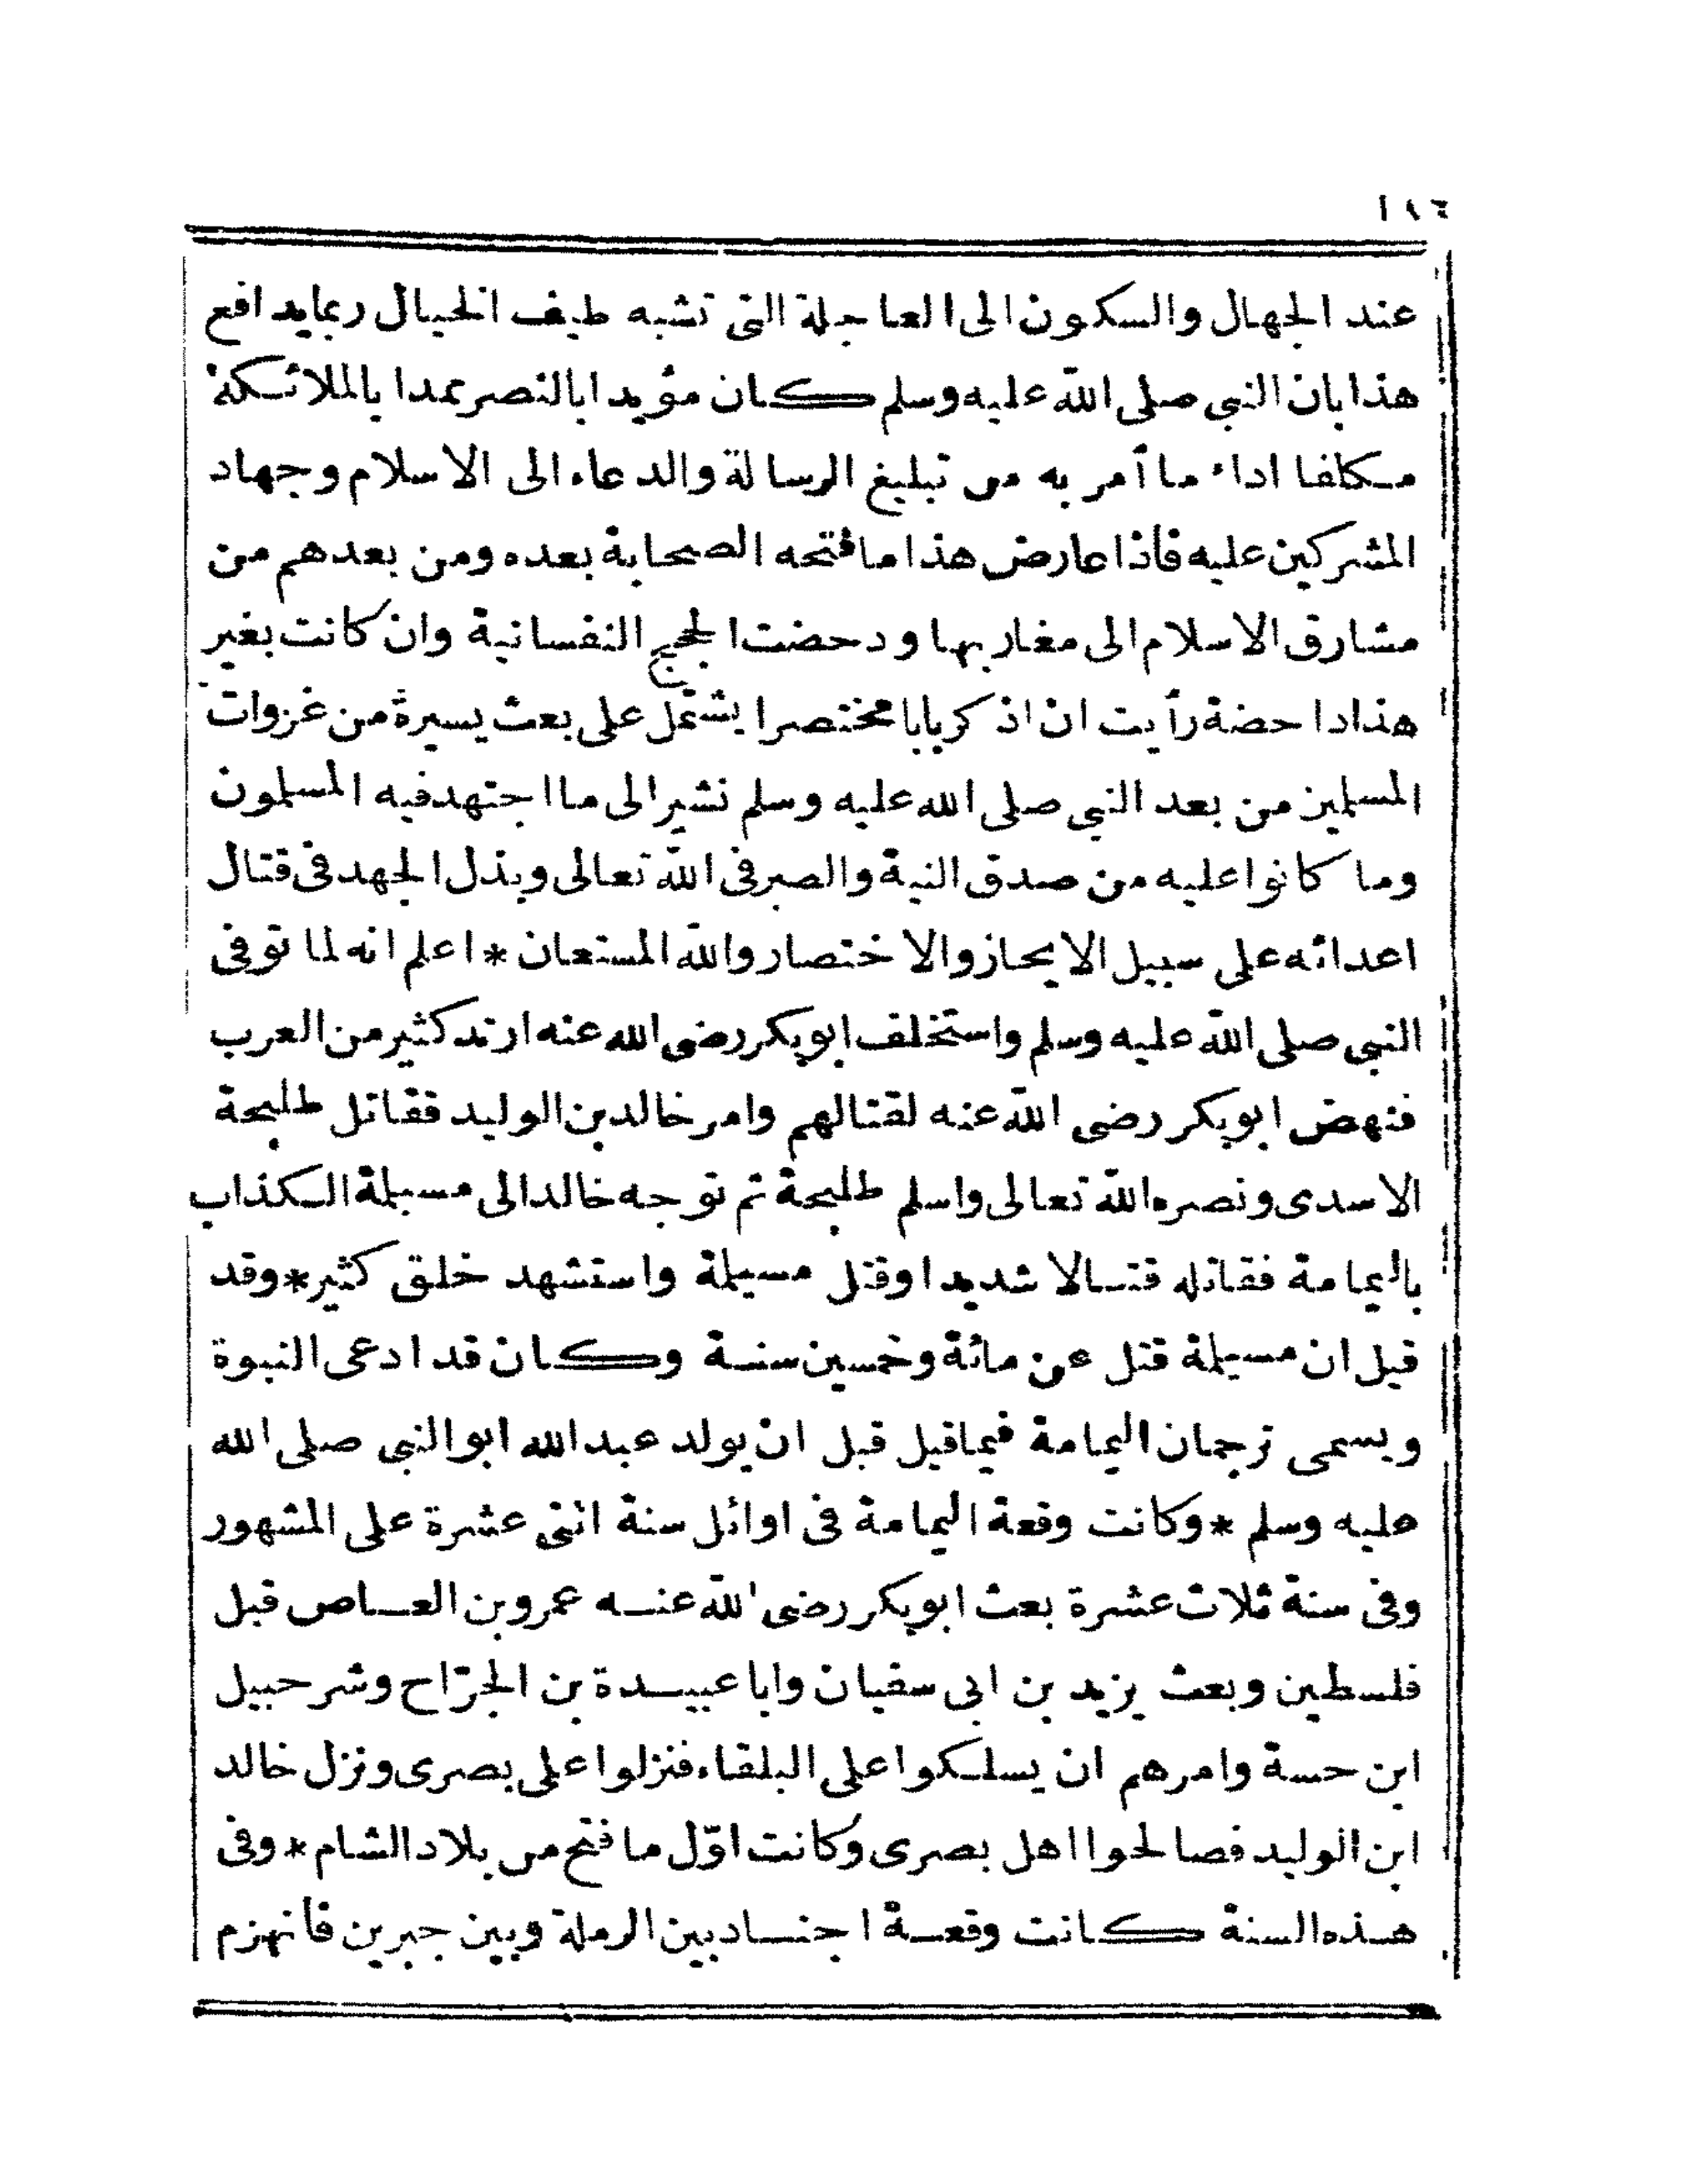 ١٨٦
عند الجهال والسكون الى العاجلة التى تشبه طيف الخيال ربما يدافع
هذا بان النبي صلى الله عليه وسلم كان مؤيدا بالنصر ممدا بالملائكة
مكلفا اداء ما أمر به من تبليغ الرسالة والدعاء الى الاسلام وجهاد
المشركين عليه فاذا عارض هذا ما فتحه الصحابة بعده ومن بعدهم من
مشارق الاسلام الى مغاربها ودحضت الحجج النفسانية وان كانت بغير
هذا داحضة رأيت ان اذكر بابا مختصرا يشتمل على بعث يسيرة من غزوات
المسلمين من بعد النبي صلى الله عليه وسلم نشير الى ما اجتهد فيه المسلمون
وما كانوا عليه من صدق النية والصبر فى الله تعالى وبذل الجهد فى قتال
اعدائه على سبيل الايجاز والاختصار والله المستعان * اعلم انه لما توفى
النبى صلى الله عليه وسلم واستخلف ابو بكر رضى الله عنه ارتد كثير من العرب
فنهض ابو بكر رضى الله عنه لقتالهم وامر خالد بن الوليد فقاتل طليحة
الاسدى ونصره الله تعالى واسلم طليحة ثم توجه خالد الى مسيلمة الكذاب
باليمامة فقاتله قتالا شديدا وقتل مسيلمة واستشهد خلق كثير * وقد
قيل ان مسيلمة قتل عن مائة وخمسين سنة وكان قد ادعى النبوة
ويسمى ترجمان اليمامة فيما قيل قبل ان يولد عبد الله ابو النبى صلى الله
عليه وسلم * وكانت وقعة اليمامة فى اوائل سنة اثنتى عشرة على المشهور
وفى سنة ثلاث عشرة بعث ابو بكر رضى الله عنه عمرو بن العاص قبل
فلسطين وبعث يزيد بن ابى سفيان وابا عبيدة بن الجرّاح وشرحبيل
ابن حسنة وامرهم ان يسلكوا على البلقاء فنزلوا على بصرى ونزل خالد
ابن الوليد فصالحوا اهل بصرى وكانت اوّل ما فتح من بلاد الشام * وفى
هذه السنة كانت وقعة اجنادين بين الرملة وبين جبرين فانهزم